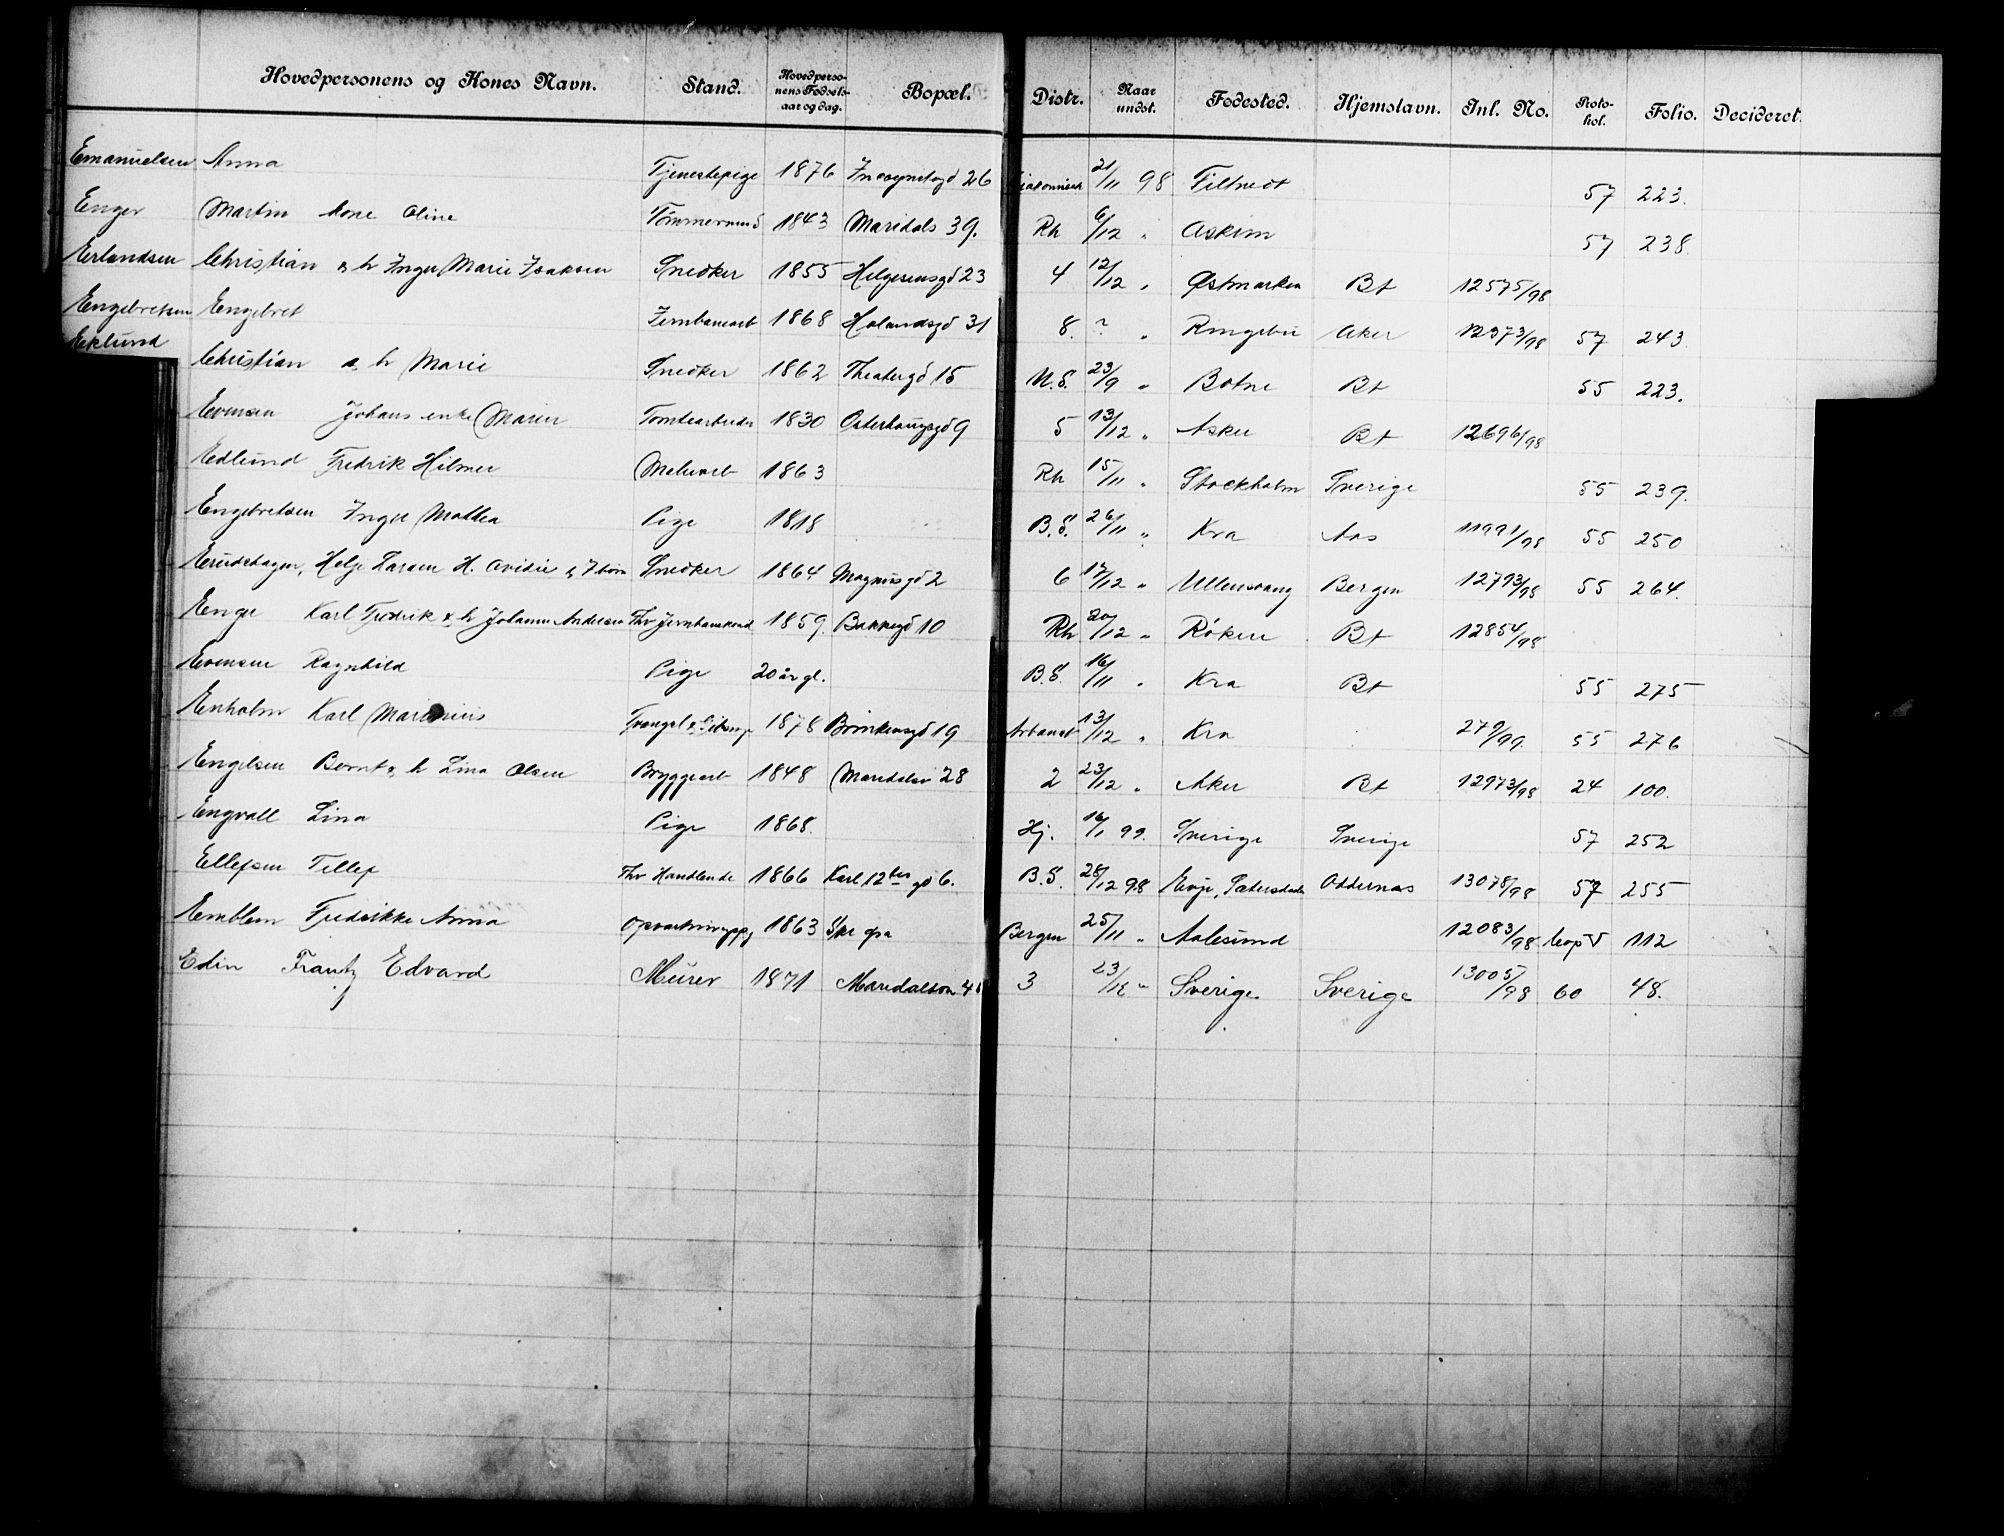 Hovedpersonens og Kones Navn. Stand. Hovedpersonens Fødselsaar og dag. Bopæl. Distr. Naar undst. Fødested. Hjemstavn. Inl. No. Protokol. Folio. Decideret.
Emanuelsen Anna Tjenestepige 1876 26 21/11 98 57 223.
Enger Martin kone Oline Tømmermd 1843 Maridals 39. Rh 6/12 " Askim 57 238
Erlandsen Christian & h Inger Marie Isaksen Snedker 1855 Helgesensgd 23 4 12/12 " Østmarken Bt 12575/98
Engebretsen Engebret Jernbanearb 1868 31 8. ? " Ringebu Aker 12373/98 57 243
Eklund Christian & h Marie Snedker 1862 Theatergd 15 U.S. 23/9 " Botne Bt 55 223.
Evensen Johans enke Maren Tomtearbeider 1830 Osterhausgd 9 5 13/12 " Asker Bt 12696/98
Edlund Fredrik Hilmer 1863 Rh 15/11 " Stockholm Sverige 55 239.
Engebretsen Inger Mathea Pige 1818 B.S. 26/11 " Kra Aas 11991/98 55 250
Helge Larsen H. & 7 børn Snedker 1864 Magnusgd 2 6 17/12 " Ullensvang Bergen 12793/98 55 264.
Enge Karl Fredrik & h Johanne Andersen Fhv 1859. Bakkegd 10 Rh 20/12 " Røken Bt 12854/98
Evensen Ragnhild Pige 20 år gl. B.S. 16/11 " Kra Bt 55 275
Enholm Karl Marinius 1878 19 13/12 " Kra 279/99 55 276
Engelsen Bernt & h Lina Olsen Bryggearb 1848 Maridalsv 28 2 23/12 " Aker Bt 12973/98 24 100.
Engvall Lina Pige 1868. Hj. 16/1 99. Sverige Sverige 57 252
Ellefsen Tellef Fhv Handlende 1866 Karl 12tes gd 6. B.S. 28/12 98 Evje, Sætersdalen Oddernes 13078/98 57 255
Emblem Fredrikke Anna 1863 Bergen 25/11 " Aalesund 12083/98 112
Edin Frantz Edvard Murer 1871 3 23/12 " Sverige. Sverige 13005/98 60 48.